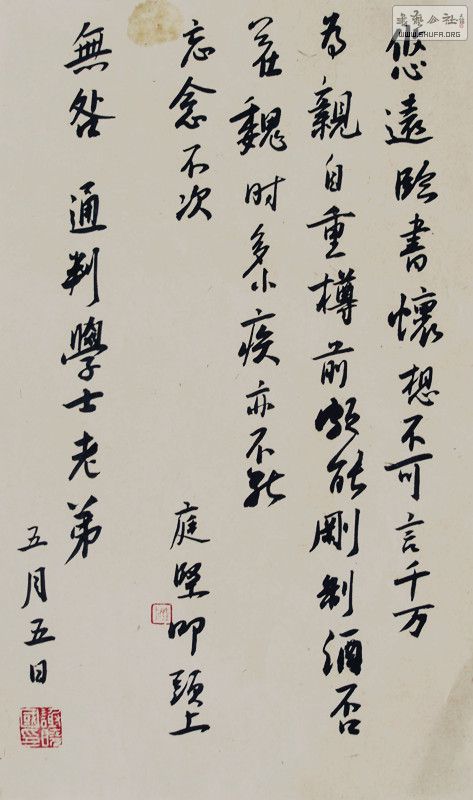 書藝公社
WWW.SHUFA.ORG
悠遠臨書懷想不可言千万
為親自重樽前頗能剛制酒否
在魏时多小疾亦不能
忘念不次
庭堅叩頭上
無咎 通判學士老弟
五月五日